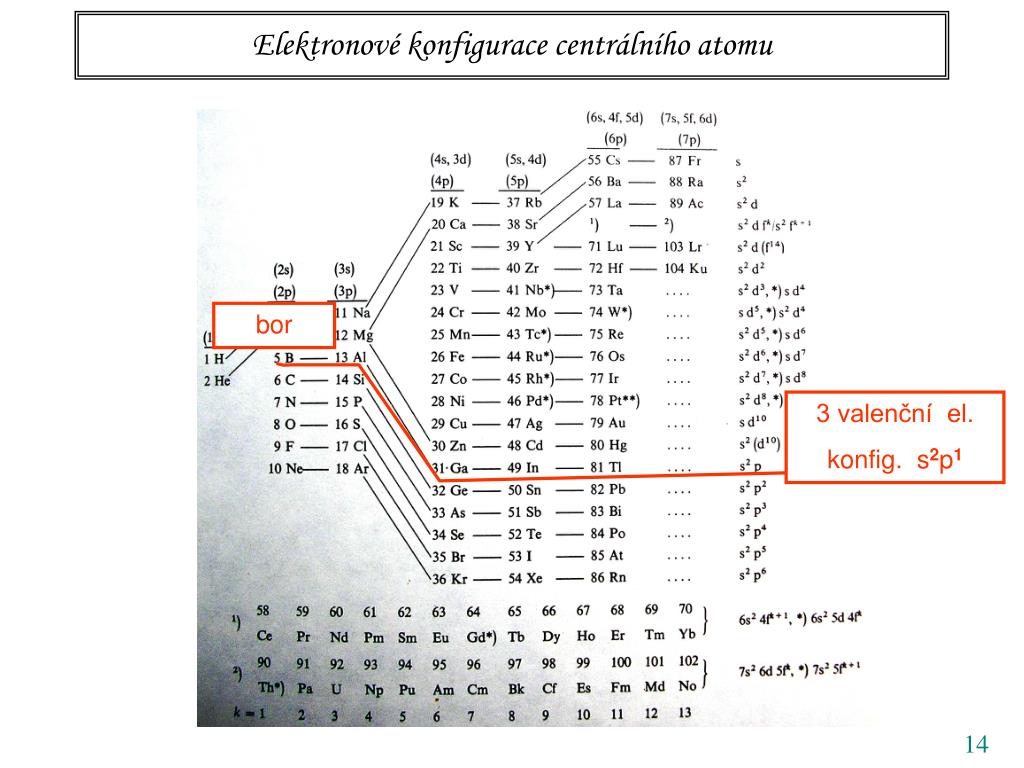 Elektronové konfigurace centrálního atomu
(6s, 4f, 5d) (7s, 5f, 6d)
(6p) (7p)
(4s, 3d) (5s, 4d) 55 Cs 87 Fr s
(4p) (5p) 56 Ba 88 Ra s²
19 K 37 Rb 57 La 89 Ac s² d
20 Ca 38 Sr ¹) ²) s² d fᵏ/s² fᵏ⁺¹
21 Sc 39 Y 71 Lu 103 Lr s² d (f¹⁴)
(2s) (3s) 22 Ti 40 Zr 72 Hf 104 Ku s² d²
(2p) (3p) 23 V 41 Nb*) 73 Ta .... s² d³, *) s d⁴
11 Na 24 Cr 42 Mo 74 W*) .... s d⁵, *) s² d⁴
bor
12 Mg 25 Mn 43 Tc*) 75 Re .... s² d⁵, *) s d⁶
1 H 5 B 13 Al 26 Fe 44 Ru*) 76 Os .... s² d⁶, *) s d⁷
2 He 6 C 14 Si 27 Co 45 Rh*) 77 Ir .... s² d⁷, *) s d⁸
7 N 15 P 28 Ni 46 Pd*) 78 Pt**) .... s² d⁸, *)
8 O 16 S 29 Cu 47 Ag 79 Au .... s d¹⁰
9 F 17 Cl 30 Zn 48 Cd 80 Hg .... s² (d¹⁰)
10 Ne 18 Ar 31 Ga 49 In 81 Tl .... s² p
3 valenční el.
konfig. s²p¹
32 Ge 50 Sn 82 Pb .... s² p²
33 As 51 Sb 83 Bi .... s² p³
34 Se 52 Te 84 Po .... s² p⁴
35 Br 53 I 85 At .... s² p⁵
36 Kr 54 Xe 86 Rn .... s² p⁶
¹) 58 59 60 61 62 63 64 65 66 67 68 69 70 } 6s² 4fᵏ⁺¹, *) 6s² 5d 4fᵏ
Ce Pr Nd Pm Sm Eu Gd*) Tb Dy Ho Er Tm Yb
²) 90 91 92 93 94 95 96 97 98 99 100 101 102 } 7s² 6d 5fᵏ, *) 7s² 5fᵏ⁺¹
Th*) Pa U Np Pu Am Cm Bk Cf Es Fm Md No
k = 1 2 3 4 5 6 7 8 9 10 11 12 13
14